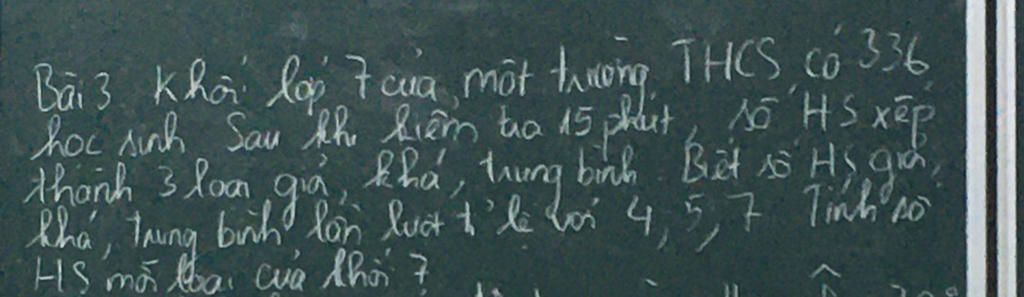 Bài 3 Khối lớp 7 của một trường THCS có 336
học sinh Sau khi kiểm tra 15 phút, số HS xếp
thành 3 loại giỏi, khá, trung bình. Biết số HS giỏi,
khá, trung bình lần lượt tỉ lệ với 4, 5, 7 Tính số
HS mỗi loại của khối 7